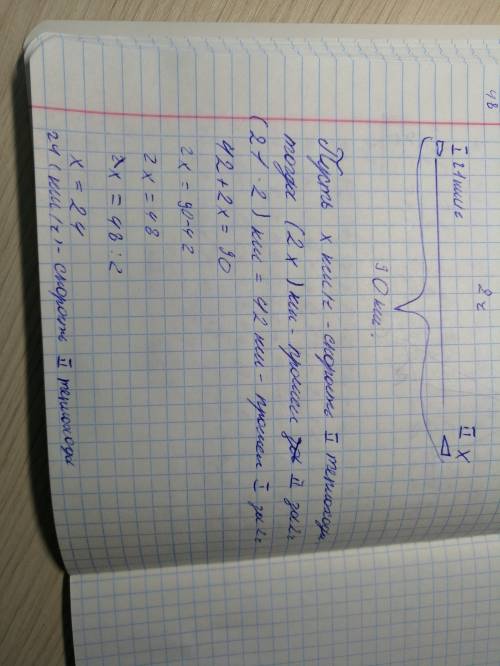 48
2 ч
I 21 км/ч
II X
90 км.
Пусть х км/ч - скорость II теплохода
тогда (2х) км - прошел II за 2ч
(21 · 2) км = 42 км - прошел I за 2ч
42 + 2х = 90
2х = 90-42
2х = 48
х = 48 : 2
х = 24
24 (км/ч) - скорость II теплохода